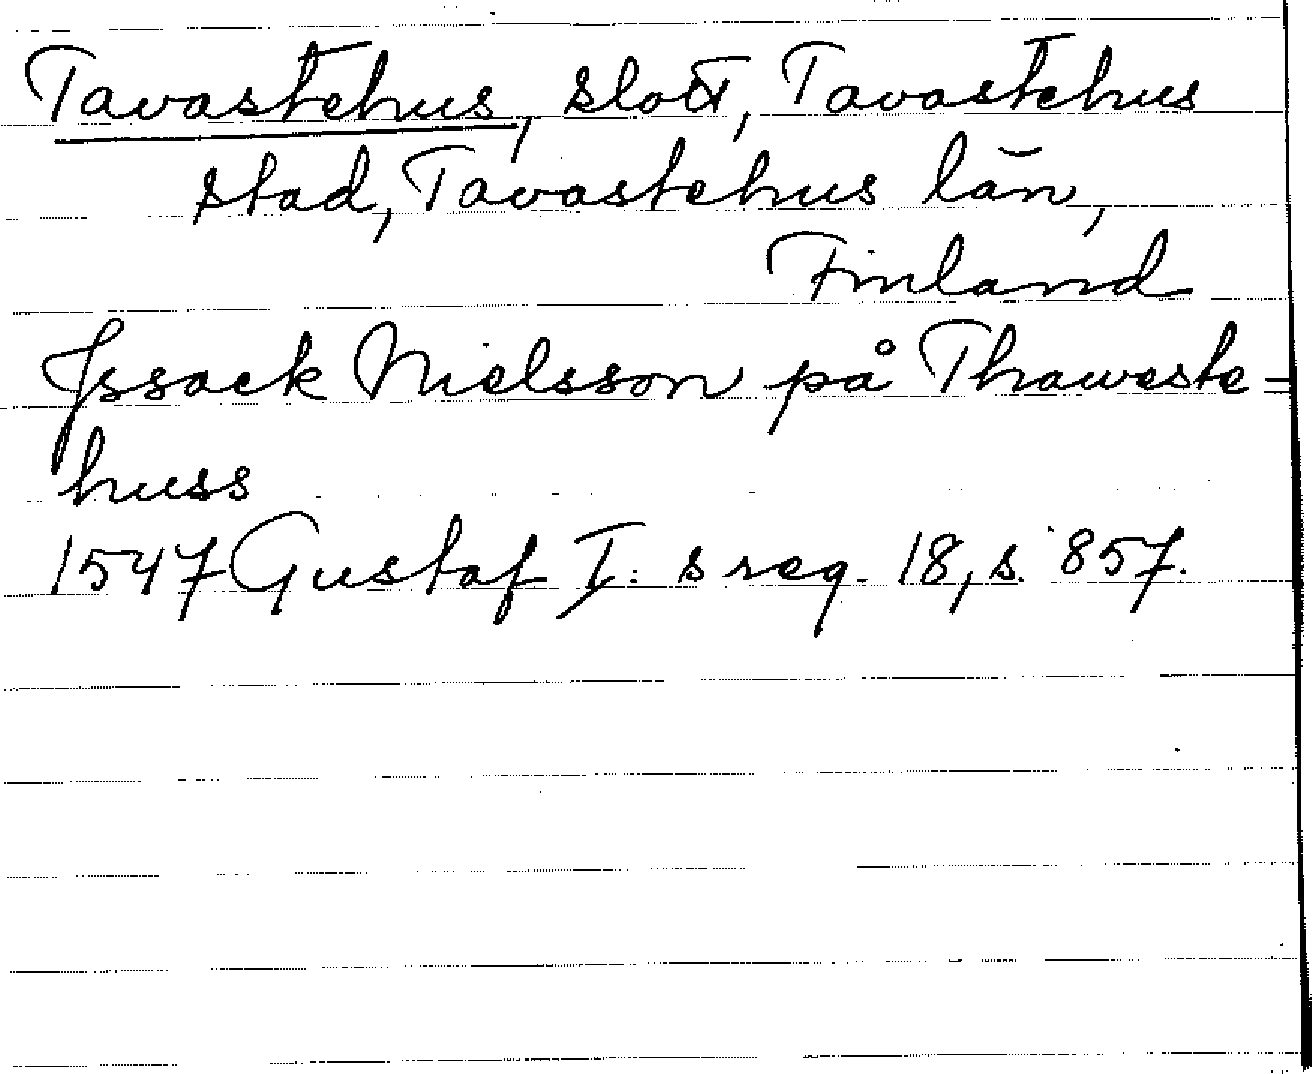 Tavastehus, slott, Tavastehus
stad, Tavastehus län,
Finland
Jssack Nielsson på Thaweste=
huss
1547 Gustaf I: s reg. 18, s. 857.